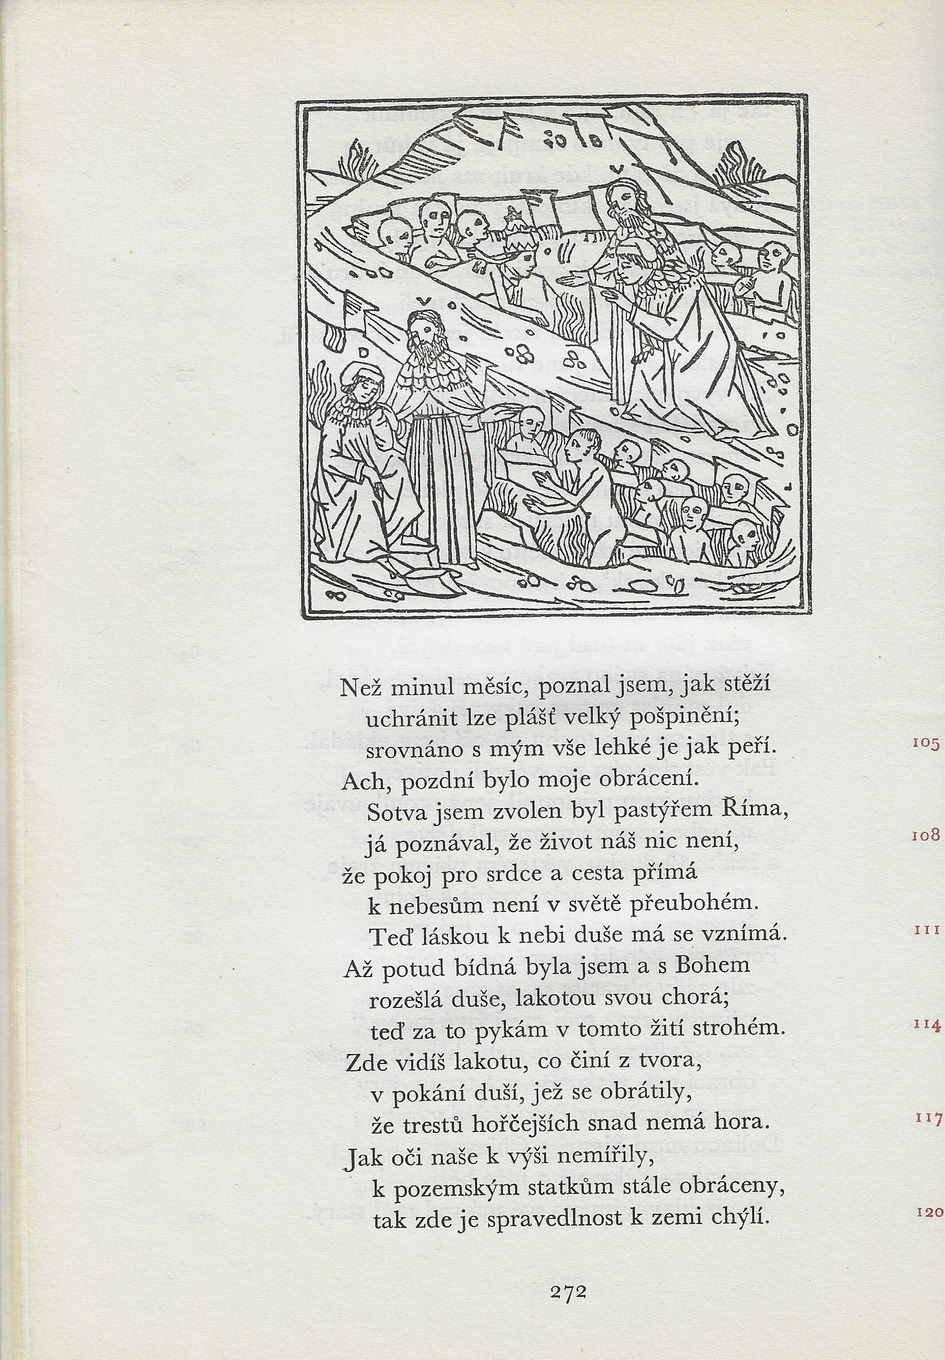 V
V
D
Než minul měsíc, poznal jsem, jak stěží
uchránit lze plášť velký pošpinění;
srovnáno s mým vše lehké je jak peří. 105
Ach, pozdní bylo moje obrácení.
Sotva jsem zvolen byl pastýřem Říma,
já poznával, že život náš nic není, 108
že pokoj pro srdce a cesta přímá
k nebesům není v světě přeubohém.
Teď láskou k nebi duše má se vznímá. 111
Až potud bídná byla jsem a s Bohem
rozešlá duše, lakotou svou chorá;
teď za to pykám v tomto žití strohém. 114
Zde vidíš lakotu, co činí z tvora,
v pokání duší, jež se obrátily,
že trestů hořčejších snad nemá hora. 117
Jak oči naše k výši nemířily,
k pozemským statkům stále obráceny,
tak zde je spravedlnost k zemi chýlí. 120
272